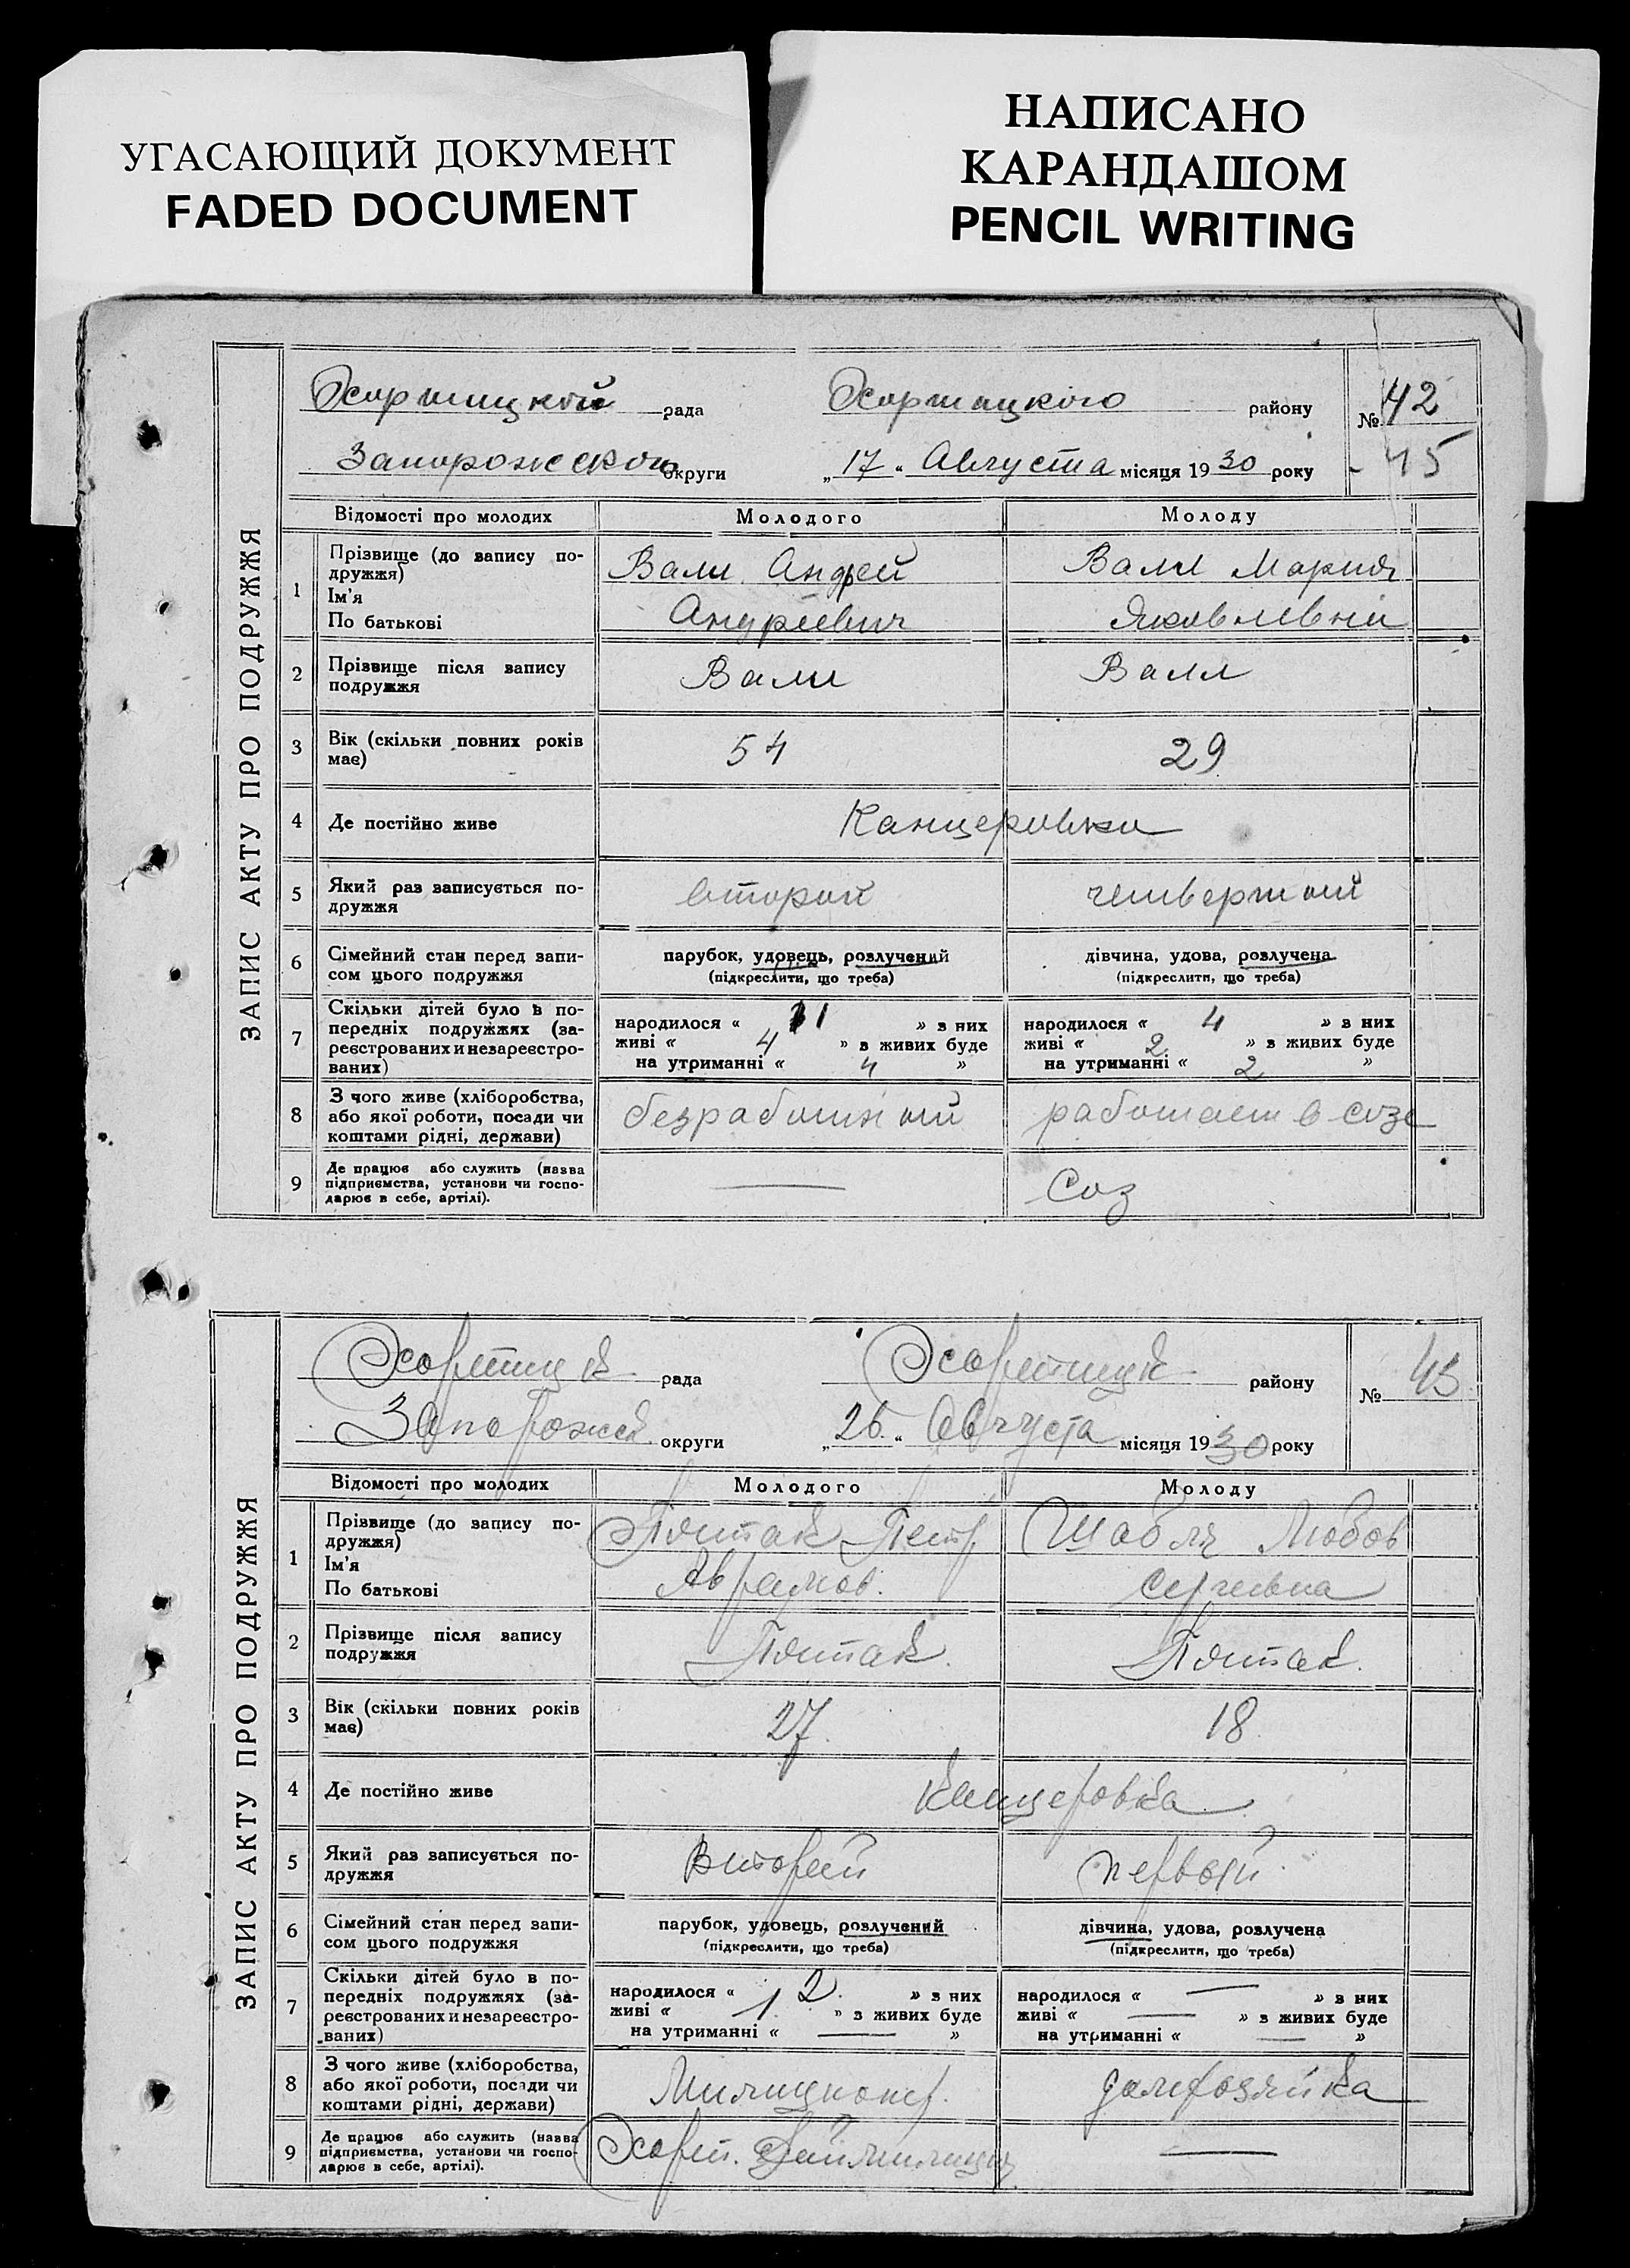 УГАСАЮЩИЙ ДОКУМЕНТ
FADED DOCUMENT
НАПИСАНО
КАРАНДАШОМ
PENCIL WRITING
ЗАПИС АКТУ ПРО ПОДРУЖЖЯ
Хортицкой рада Хортицкого району № 42
Запорожского округи „17“ Августа місяця 1930 року 45
Відомості про молодих Молодого Молоду
1 Прізвище (до запису по- Валл Андрей Валл Мария
дружжя)
Ім'я
По батькові Андріевич Яковлевна
2 Прізвище після запису Валл Валл
подружжя
3 Вік (скільки повних років 54 29
має)
4 Де постійно живе Канцеровка
5 Який раз записується по- второй четвертой
дружжя
6 Сімейний стан перед запи- парубок, удовець, розлучений дівчина, удова, розлучена
сом цього подружжя (підкреслити, що треба) (підкреслити, що треба)
7 Скільки дітей було в по- народилося « 11 » з них народилося « 4 » з них
передніх подружжях (за- живі « 4 » з живих буде живі « 2 » з живих буде
реєстрованих и незареєстро- на утриманні « 4 » на утриманні « 2 »
ваних)
8 З чого живе (хліборобства, безработный работает в созе
або якої роботи, посади чи
коштами рідні, держави)
9 Де працює або служить (назва — Соз
підприємства, установи чи госпо-
дарює в себе, артілі).
ЗАПИС АКТУ ПРО ПОДРУЖЖЯ
Хортицк рада Хортицк району № 43
Запорожск округи „26.“ Августа місяця 1930 року
Відомості про молодих Молодого Молоду
1 Прізвище (до запису по- Петр Шабля Любов
дружжя)
Ім'я
По батькові Аврамов. Сергеевна
2 Прізвище після запису
подружжя
3 Вік (скільки повних років 27. 18
має)
4 Де постійно живе Канцеровка
5 Який раз записується по- Второй первой
дружжя
6 Сімейний стан перед запи- парубок, удовець, розлучений дівчина, удова, розлучена
сом цього подружжя (підкреслити, що треба) (підкреслити, що треба)
7 Скільки дітей було в по- народилося « 2. » з них народилося « — » з них
передніх подружжях (за- живі « 1 » з живих буде живі « — » з живих буде
реєстрованих и незареєстро- на утриманні « — » на утриманні « — »
ваних)
8 З чого живе (хліборобства, Милиционер. домхозяйка
або якої роботи, посади чи
коштами рідні, держави)
9 Де працює або служить (назва Хорт. Раймилиции —
підприємства, установи чи госпо-
дарює в себе, артілі).